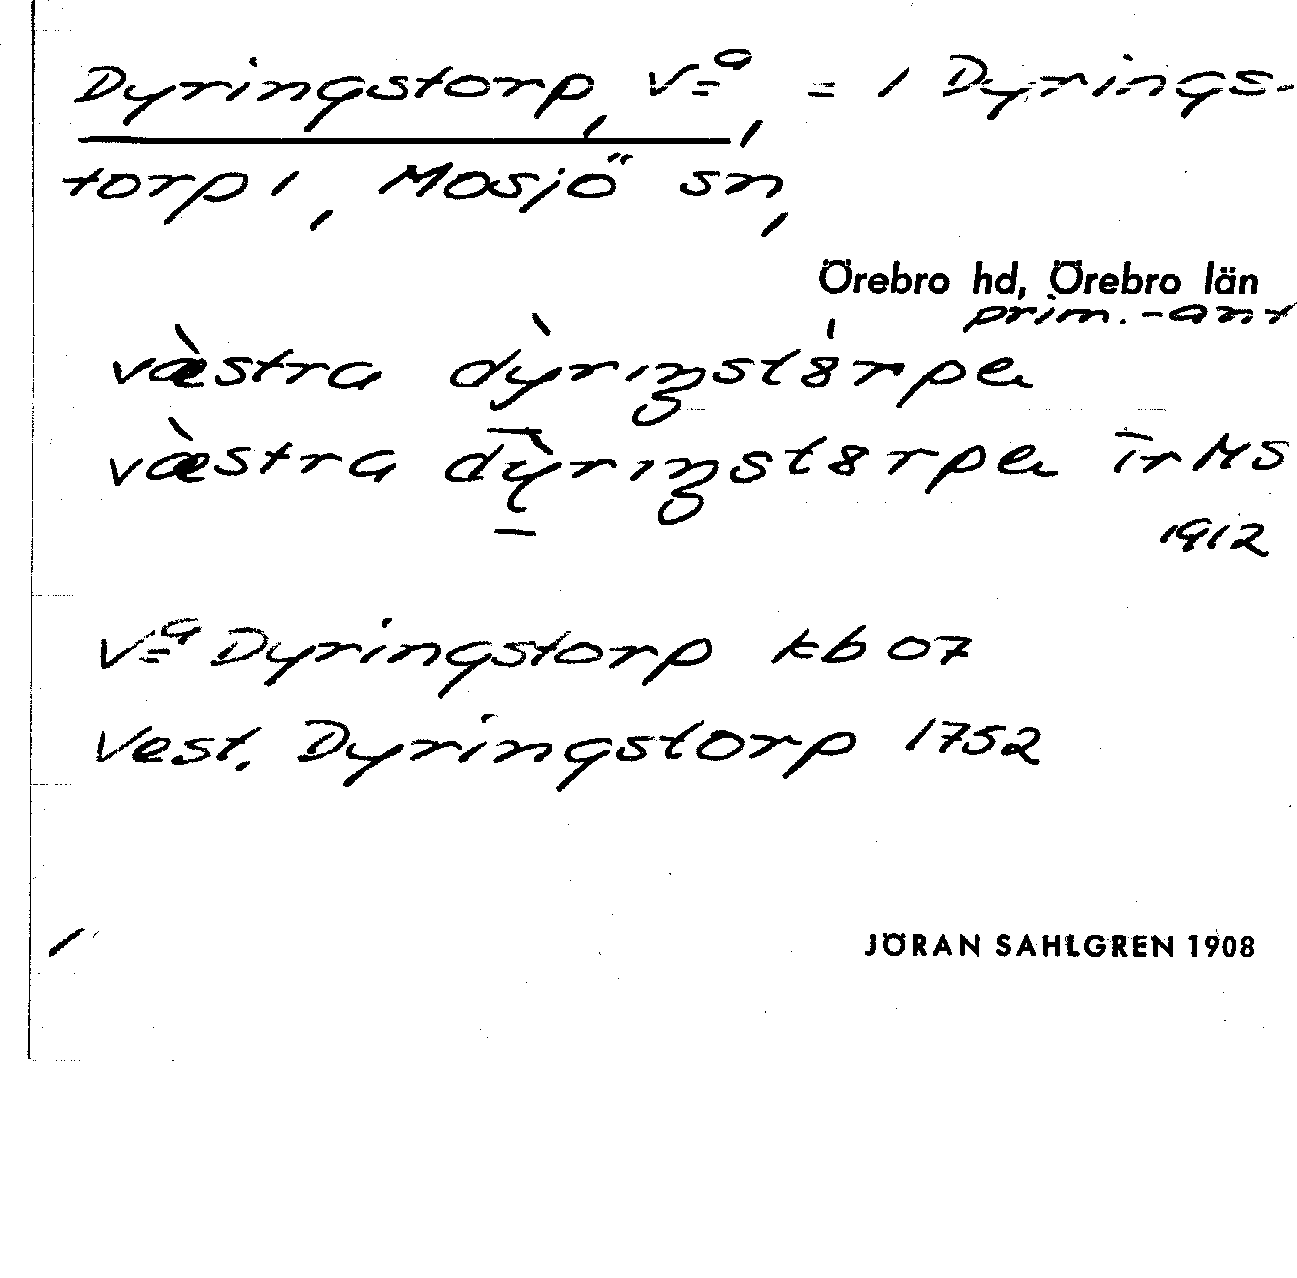 Dyringstorp, Vᵃ, = 1 Dyrings-
torp 1, Mosjö sn,
Örebro hd, Örebro län
prim.-ant
væ̀stra dỳriŋst8́rpa
væ̀stra dỳriŋst8rpa Ir MS
1912
Vᵃ Dyringstorp kb 07
Vest. Dyringstorp 1752
JÖRAN SAHLGREN 1908